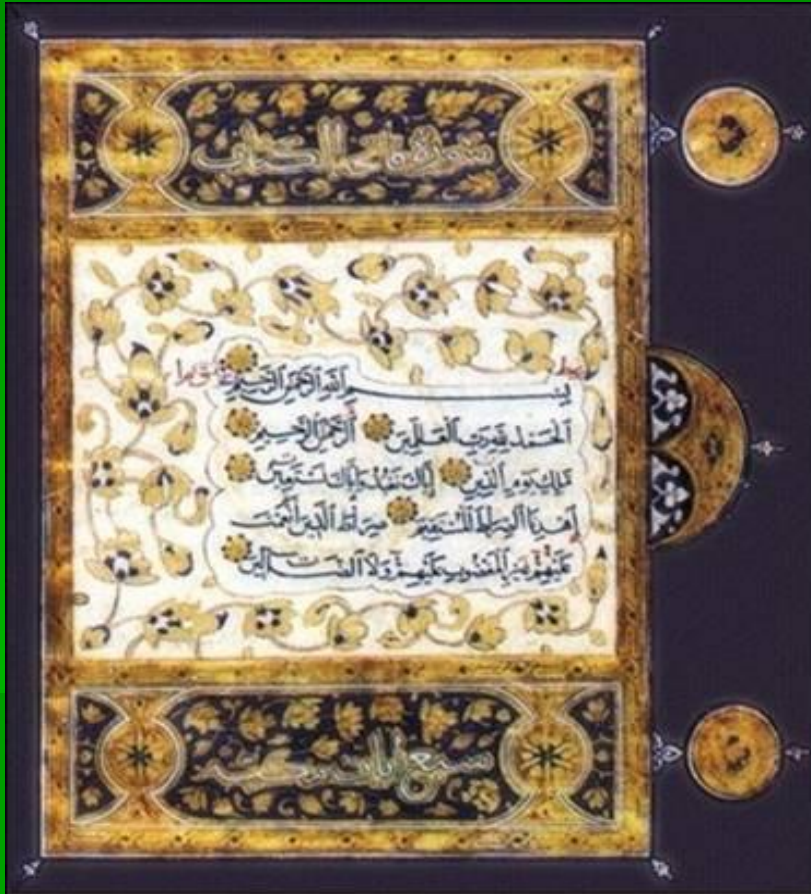 سورة فاتحة الكتاب
بسم الله الرحمن الرحيم
الحمد لله رب العلمين الرحمن الرحيم
ملك يوم الدين إياك نعبد وإياك نستعين
اهدنا الصراط المستقيم صراط الذين أنعمت
عليهم غير المغضوب عليهم ولا الضالين
سبع آيات